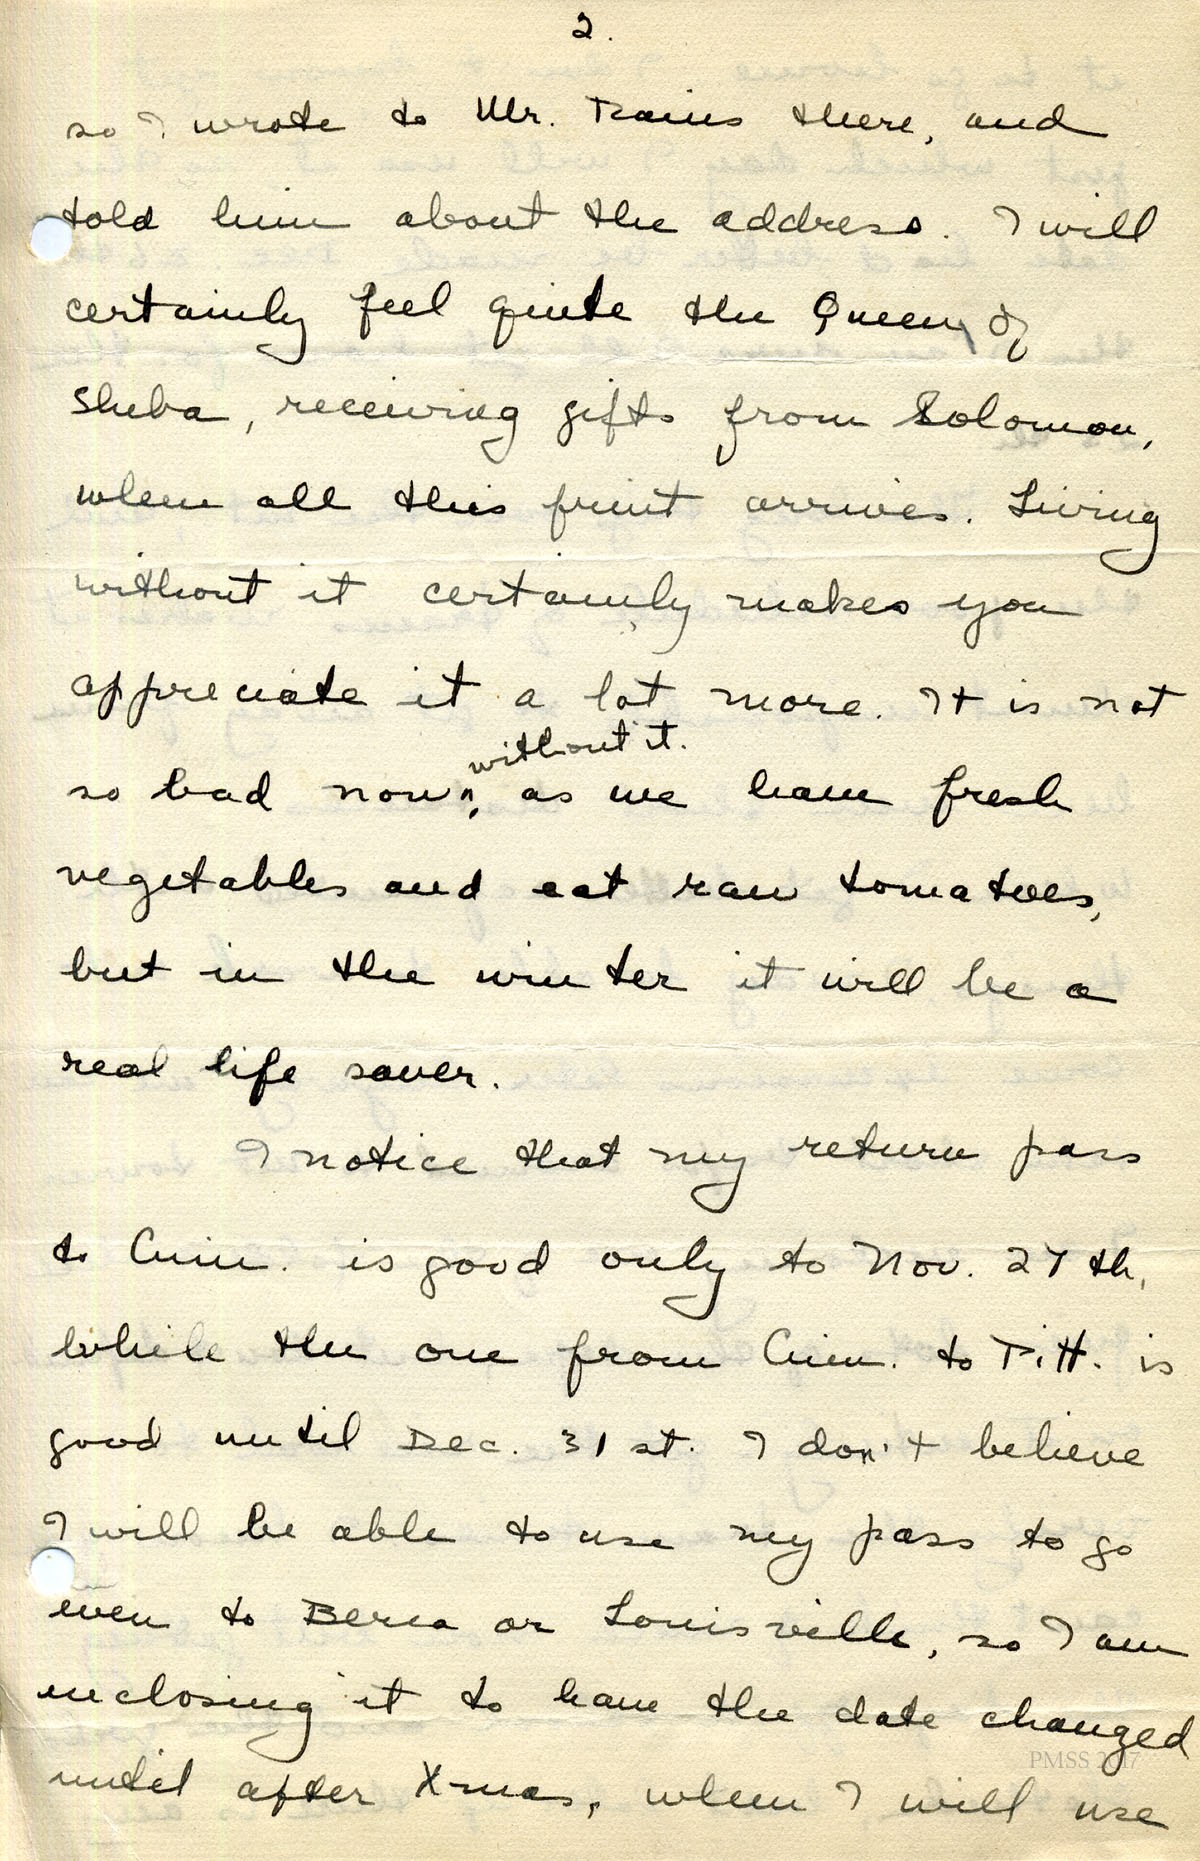 2.
so I wrote to Mr. Rains there, and
told him about the address. I will
certainly feel quite the Queen of
Sheba, receiving gifts from Solomon,
when all this fruit arrives. Living
without it certainly makes you
appreciate it a lot more. It is not
without it.
so bad now^, as we have fresh
vegetables and eat raw tomatoes,
but in the winter it will be a
real life saver.
I notice that my return pass
to Cinn. is good only to Nov. 27th,
while the one from Cinn. to Pitt. is
good until Dec. 31st. I don't believe
I will be able to use my pass to go
even to Berea or Louisville, so I am
inclosing it to have the date changed
until after Xmas, when I will use
PMSS 2017